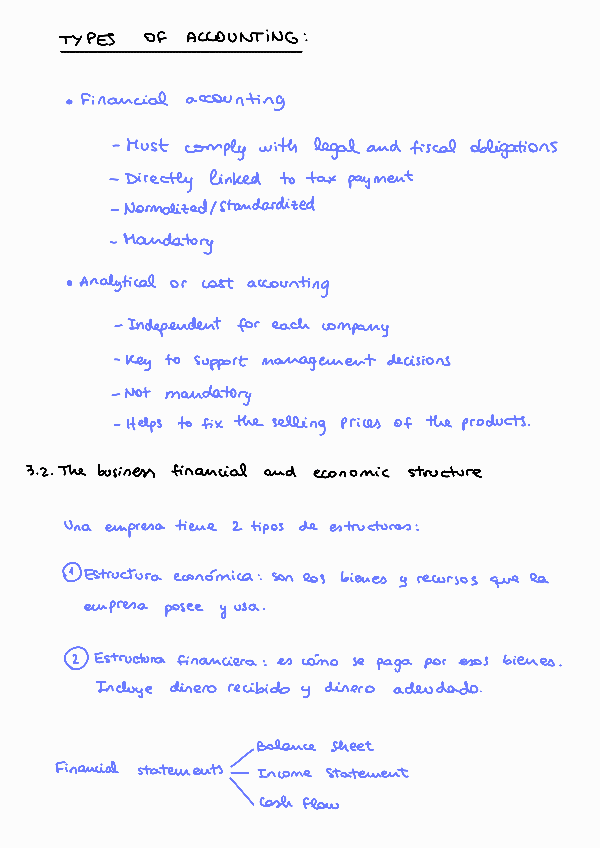 TYPES OF ACCOUNTING:
• Financial accounting
- Must comply with legal and fiscal obligations
- Directly linked to tax payment
- Normalized/Standardized
- Mandatory
• Analytical or cost accounting
- Independent for each company
- Key to support management decisions
- Not mandatory
- Helps to fix the selling prices of the products.
3.2. The business financial and economic structure
Una empresa tiene 2 tipos de estructuras:
① Estructura económica: son los bienes y recursos que la
empresa posee y usa.
② Estructura financiera: es cómo se paga por esos bienes.
Incluye dinero recibido y dinero adeudado.
Balance sheet
Financial statements
Income Statement
Cash flow